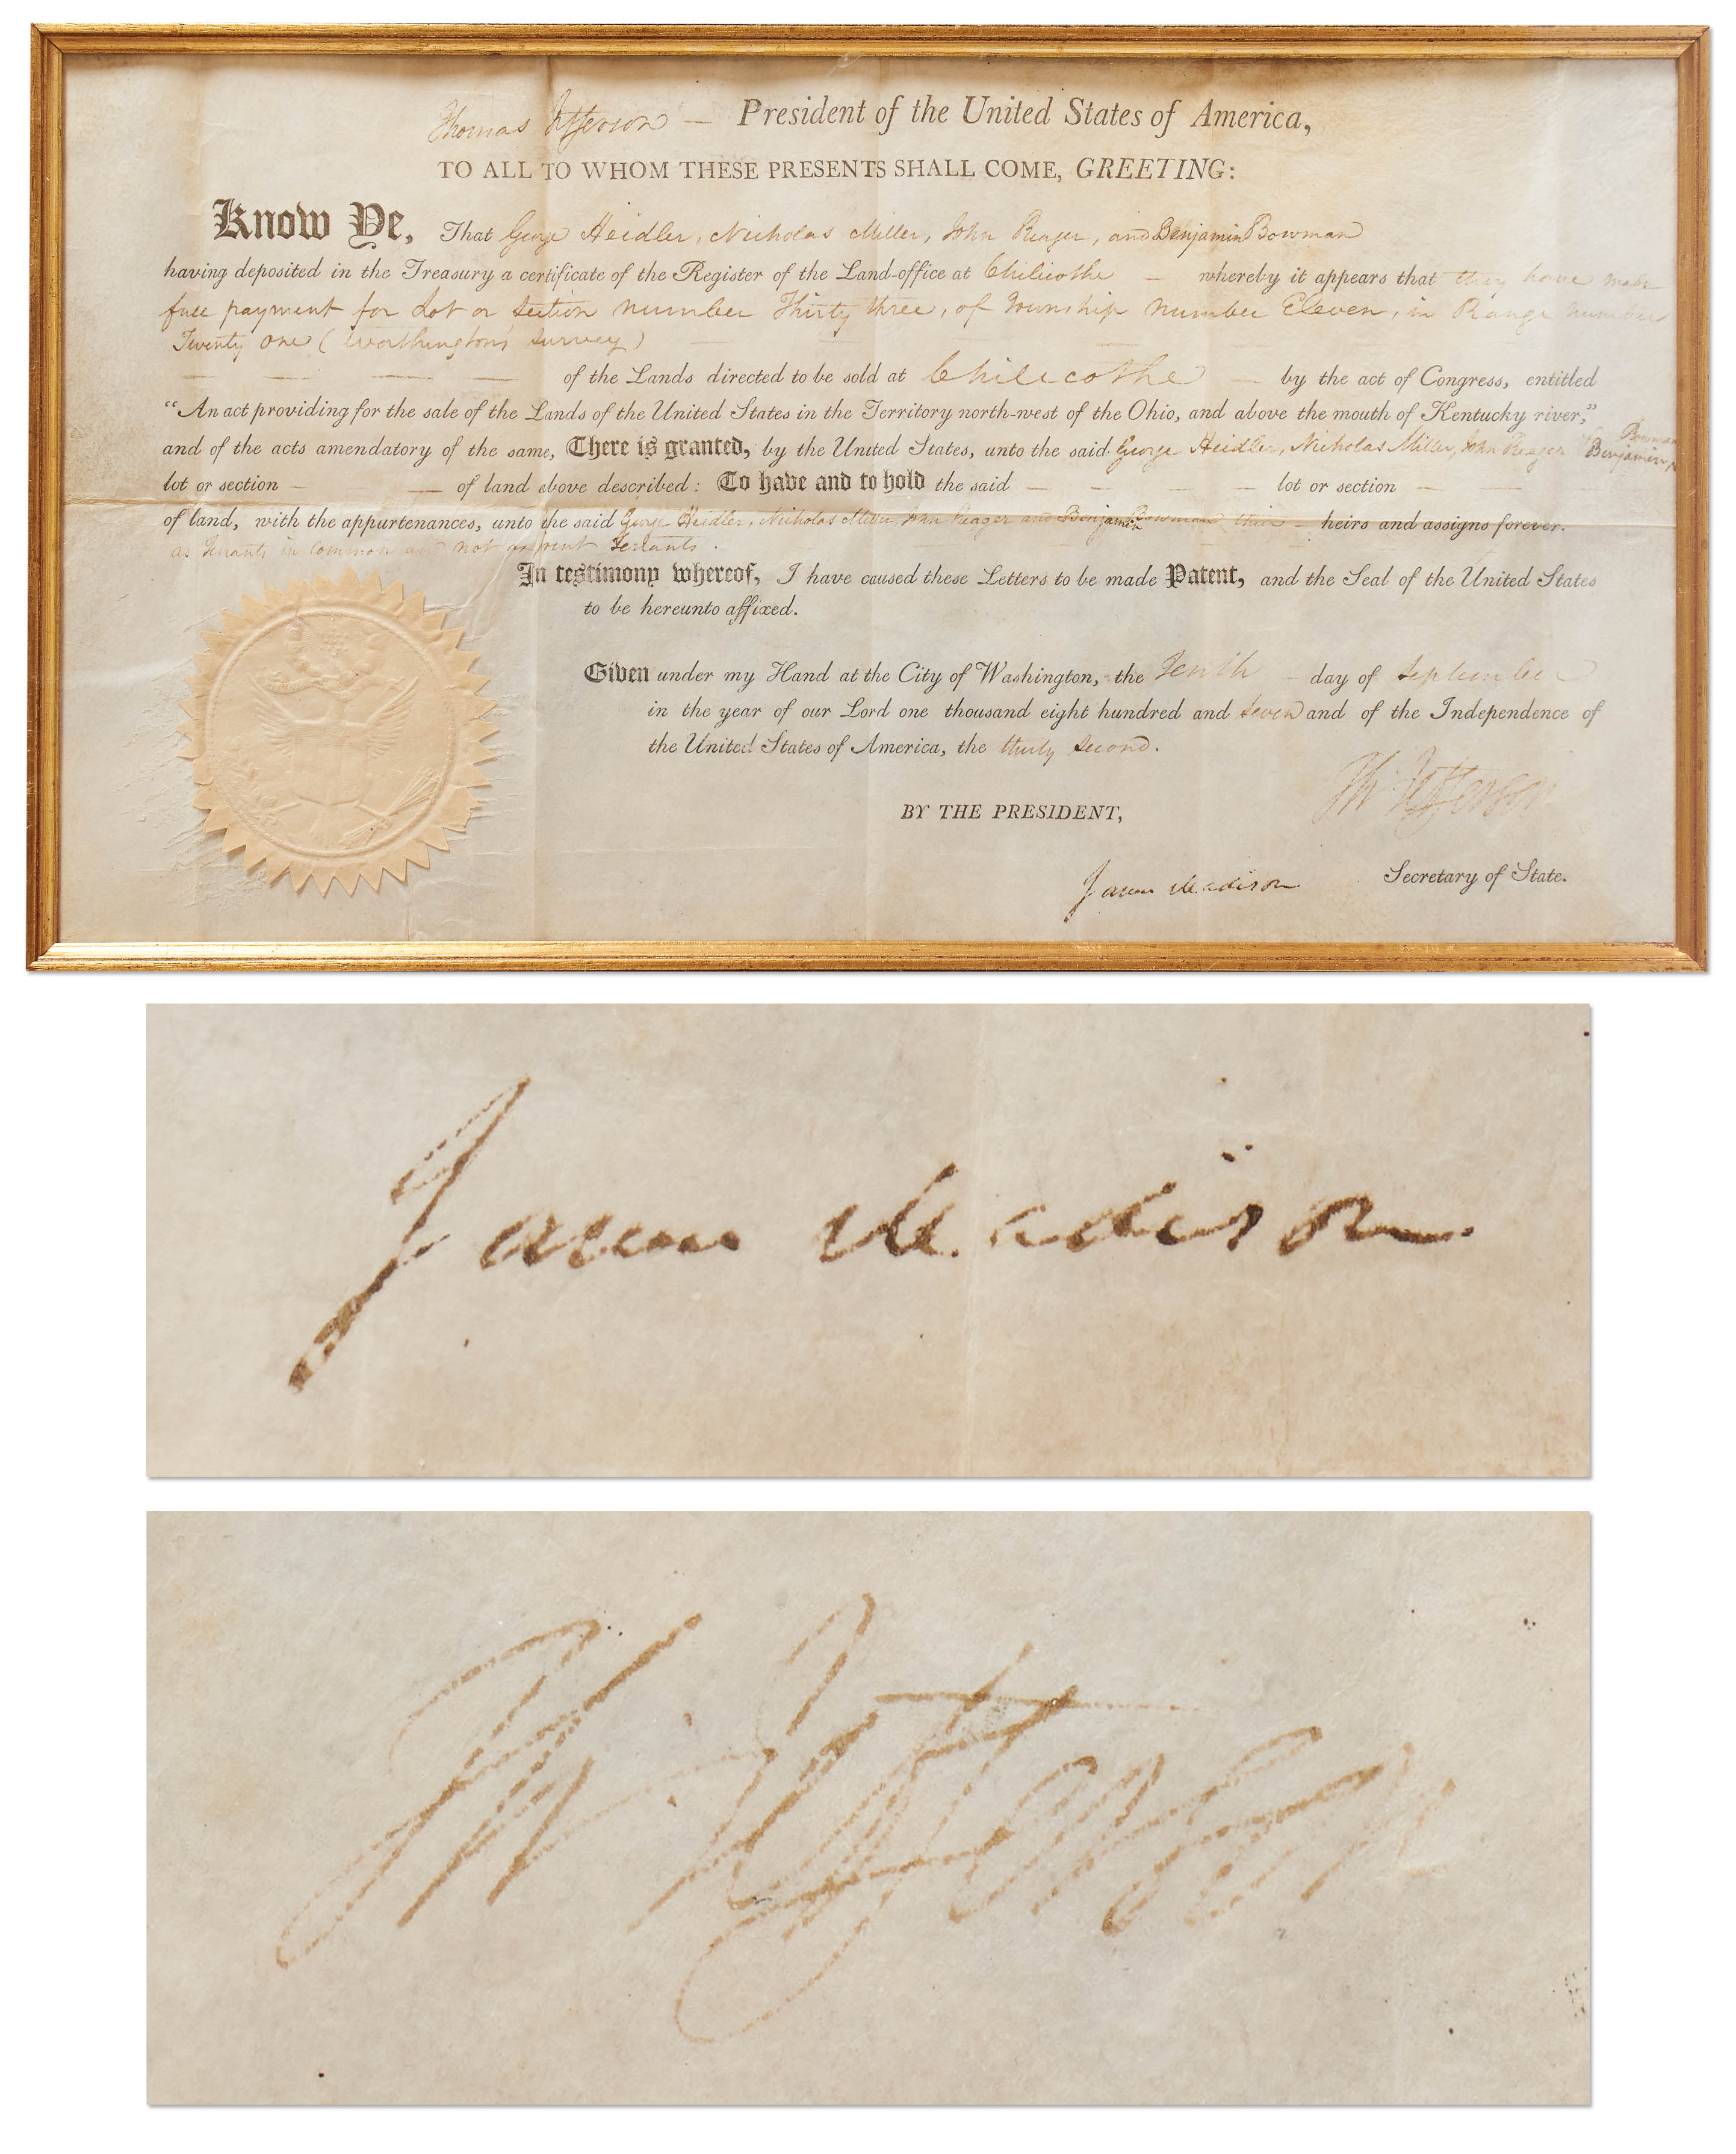 Thomas Jefferson — President of the United States of America,
TO ALL TO WHOM THESE PRESENTS SHALL COME, GREETING:
Know Ye, That George Heidler, Nicholas Miller, John Reager, and Benjamin Bowman
having deposited in the Treasury a certificate of the Register of the Land-office at Chilicothe — whereby it appears that they have made
full payment for Lot or Section number Thirty three, of Township number Eleven, in Range number
Twenty one (Worthington's survey) — — — —
— — — — of the Lands directed to be sold at Chilicothe — by the act of Congress, entitled
“An act providing for the sale of the Lands of the United States in the Territory north-west of the Ohio, and above the mouth of Kentucky river,”
and of the acts amendatory of the same, There is granted, by the United States, unto the said George Heidler, Nicholas Miller, John Reager Benjamin Bowman
lot or section — — of land above described: To have and to hold the said — — — — lot or section — —
of land, with the appurtenances, unto the said George Heidler, Nicholas Miller John Reager and Benjamin Bowman their — heirs and assigns forever.
as tenants in common and not as joint tenants.
In testimony whereof, I have caused these Letters to be made Patent, and the Seal of the United States
to be hereunto affixed.
Given under my Hand at the City of Washington, the Tenth — day of September
in the year of our Lord one thousand eight hundred and seven and of the Independence of
the United States of America, the thirty second.
Th: Jefferson
BY THE PRESIDENT,
James Madison Secretary of State.
James Madison
Th: Jefferson